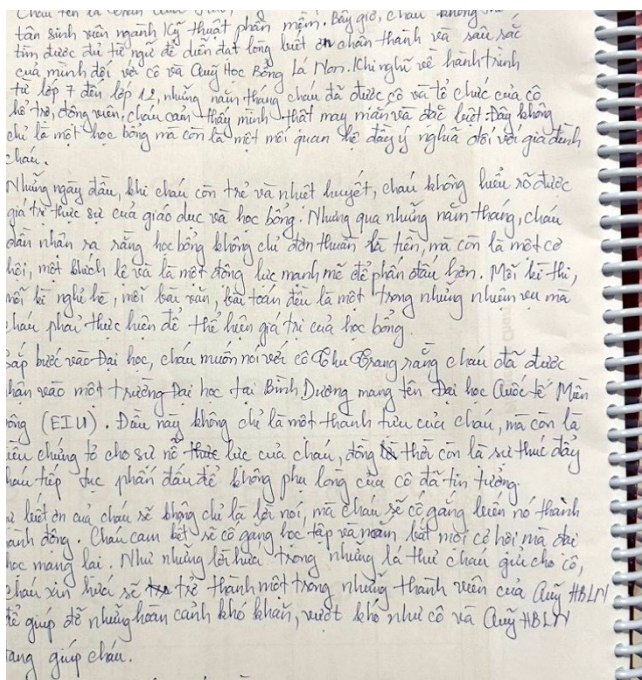 Cháu tên là
tân sinh viên ngành Kỹ thuật phần mềm. Bây giờ, cháu không
tìm được đủ từ ngữ để diễn đạt lòng biết ơn chân thành và sâu sắc
của mình đối với cô và Quỹ Học Bổng Lá Non. Khi nghĩ về hành trình
từ lớp 7 đến lớp 12, những năm tháng cháu đã được cô và tổ chức của cô
hỗ trợ, động viên, cháu cảm thấy mình thật may mắn và đặc biệt. Đây không
chỉ là một học bổng mà còn là một mối quan hệ đầy ý nghĩa đối với gia đình
cháu.
Những ngày đầu, khi cháu còn trẻ và nhiệt huyết, cháu không hiểu rõ được
giá trị thực sự của giáo dục và học bổng. Nhưng qua những năm tháng, cháu
dần nhận ra rằng học bổng không chỉ đơn thuần là tiền, mà còn là một cơ
hội, một khích lệ và là một động lực mạnh mẽ để phấn đấu hơn. Mỗi kì thi,
mỗi kì nghỉ hè, mỗi bài văn, bài toán đều là một trong những nhiệm vụ mà
cháu phải thực hiện để thể hiện giá trị của học bổng.
Sắp bước vào Đại học, cháu muốn nói với cô Thu Trang rằng cháu đã được
nhận vào một trường Đại học tại Bình Dương mang tên Đại học Quốc tế Miền
Đông (EIU). Điều này không chỉ là một thành tựu của cháu, mà còn là
điều chứng tỏ cho sự nỗ lực của cháu, đồng thời còn là sự thúc đẩy
cháu tiếp tục phấn đấu để không phụ lòng của cô đã tin tưởng.
Sự biết ơn của cháu sẽ không chỉ là lời nói, mà cháu sẽ cố gắng biến nó thành
hành động. Cháu cam kết sẽ cố gắng học tập và nắm bắt mọi cơ hội mà đại
học mang lại. Như những lời hứa trong những lá thư cháu gửi cho cô,
cháu xin hứa sẽ trở thành một trong những thành viên của Quỹ HBLN
để giúp đỡ những hoàn cảnh khó khăn, vượt khó như cô và Quỹ HBLN
đang giúp cháu.